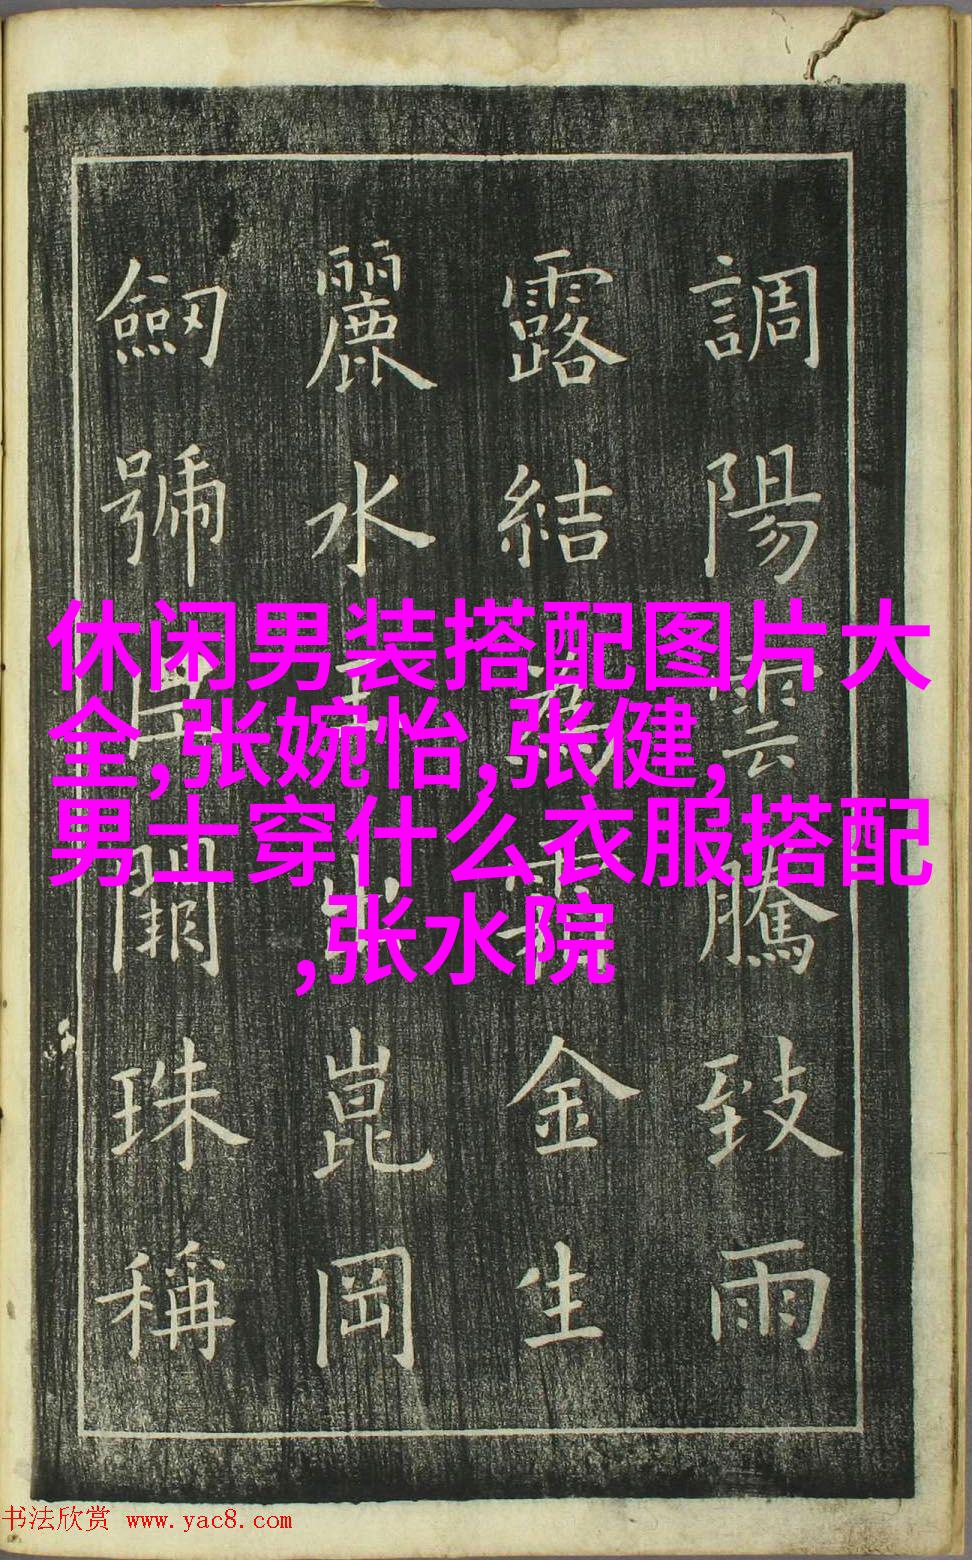 休闲男装搭配图片大
全,张婉怡,张健,
男士穿什么衣服搭配
,张水院
調陽雲騰致雨
露結為霜金生
麗水玉出崑岡
劒號巨闕珠稱
书法欣赏 www.yac8.com